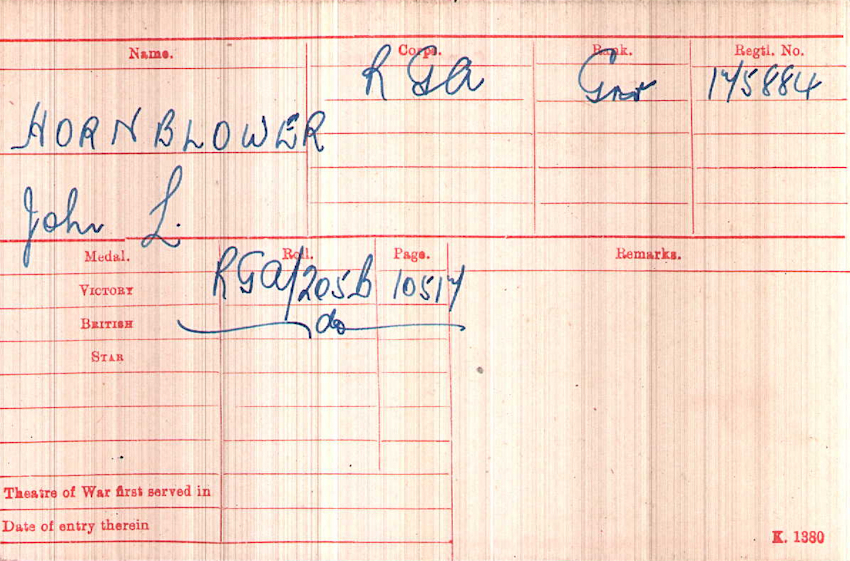 Name. Corps. Rank. Regtl. No.
RGA Gnr 175884
HORNBLOWER
John L.
Medal. Roll. Page. Remarks.
VICTORY RGA/205B 10517
BRITISH do
STAR
Theatre of War first served in
Date of entry therein
K. 1380